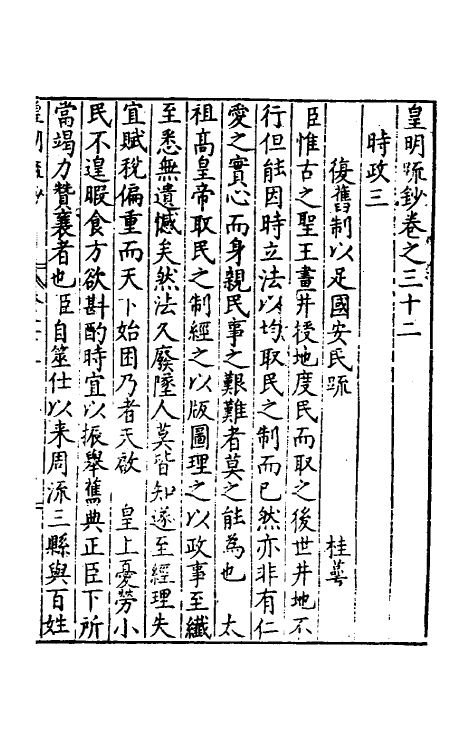 皇明疏鈔卷之三十二
時政三
復舊制以足國安民疏　桂萼
臣惟古之聖王畫井授地度民而取之後世井地不
行但能因時立法以均取民之制而已然亦非有仁
愛之實心而身親民事之艱難者莫之能為也　太
祖高皇帝取民之制經之以版圖理之以政事至纖
至悉無遺憾矣然法久廢墜人莫皆知遂至經理失
宜賦稅偏重而天下始困乃者天啟　皇上憂勞小
民不遑暇食方欲斟酌時宜以振舉舊典正臣下所
當竭力贊襄者也臣自筮仕以来周流三縣與百姓